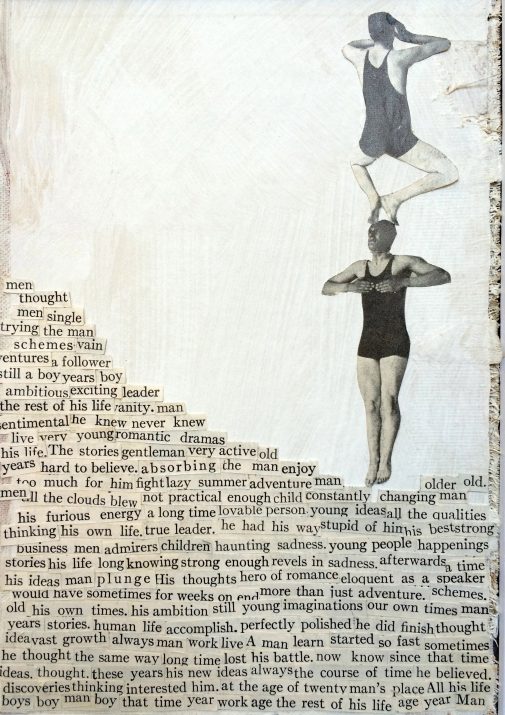 men
thought
men single
trying the man
schemes vain
ventures a follower
still a boy years boy
ambitious exciting leader
the rest of his life vanity. man
sentimental he knew never knew
live very young romantic dramas
his life. The stories gentleman very active old
years hard to believe. absorbing the man enjoy
too much for him fight lazy summer adventure man older old.
men all the clouds blew not practical enough child constantly changing man
his furious energy a long time lovable person. young ideas all the qualities
thinking his own life. true leader. he had his way stupid of him his best strong
business men admirers children haunting sadness. young people happenings
stories his life long knowing strong enough revels in sadness. afterwards a time
his ideas man plunge His thoughts hero of romance eloquent as a speaker
would have sometimes for weeks on end more than just adventure. schemes.
old his own times. his ambition still young imaginations our own times man
years stories. human life accomplish. perfectly polished he did finish thought
idea vast growth always man work live A man learn started so fast sometimes
he thought the same way long time lost his battle. now know since that time
ideas. thought. these years his new ideas always the course of time he believed.
discoveries thinking interested him. at the age of twenty man's place All his life
boys boy man boy that time year work age the rest of his life age year Man